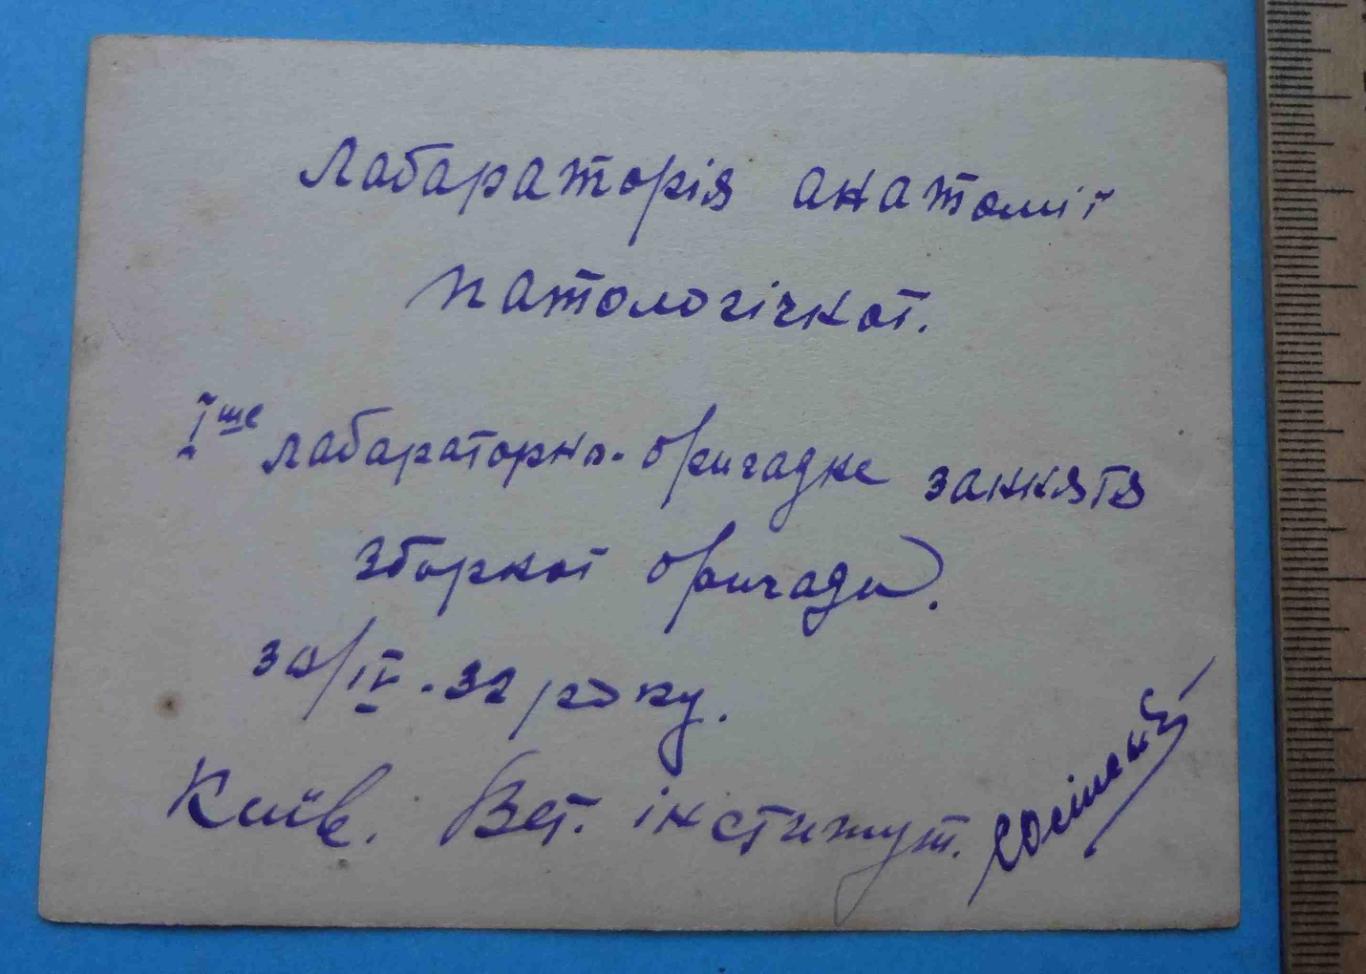 Лабараторія анатомії
патологічної.
Iше лабараторно-бригадне заняття
збоpної бригади.
30/IV-32 року.
Київ. Вет. інститут.